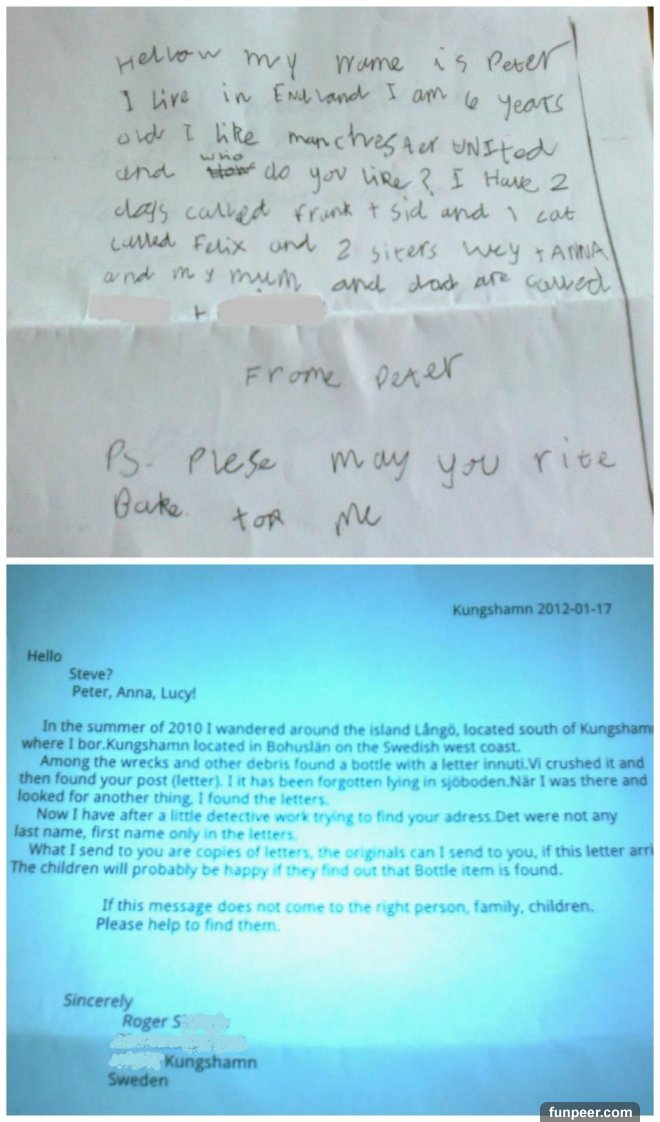 Hellow my name is Peter
I live in England I am 6 years
old I like manchester UNIted
and who do you like? I Have 2
dogs called Frank + Sid and 1 cat
called Felix and 2 sisters + ANNA
and my mum and dad are called
+
Frome Peter
Ps. Plese may you rite
Bake tor Me
Kungshamn 2012-01-17
Hello
Steve?
Peter, Anna, Lucy!
In the summer of 2010 I wandered around the island Långö, located south of Kungsham
where I bor.Kungshamn located in Bohuslän on the Swedish west coast.
Among the wrecks and other debris found a bottle with a letter innuti.Vi crushed it and
then found your post (letter). I it has been forgotten lying in sjöboden.När I was there and
looked for another thing, I found the letters.
Now I have after a little detective work trying to find your adress.Det were not any
last name, first name only in the letters.
What I send to you are copies of letters, the originals can I send to you, if this letter arri
The children will probably be happy if they find out that Bottle item is found.
If this message does not come to the right person, family, children.
Please help to find them.
Sincerely
Roger S
Kungshamn
Sweden
funpeer.com